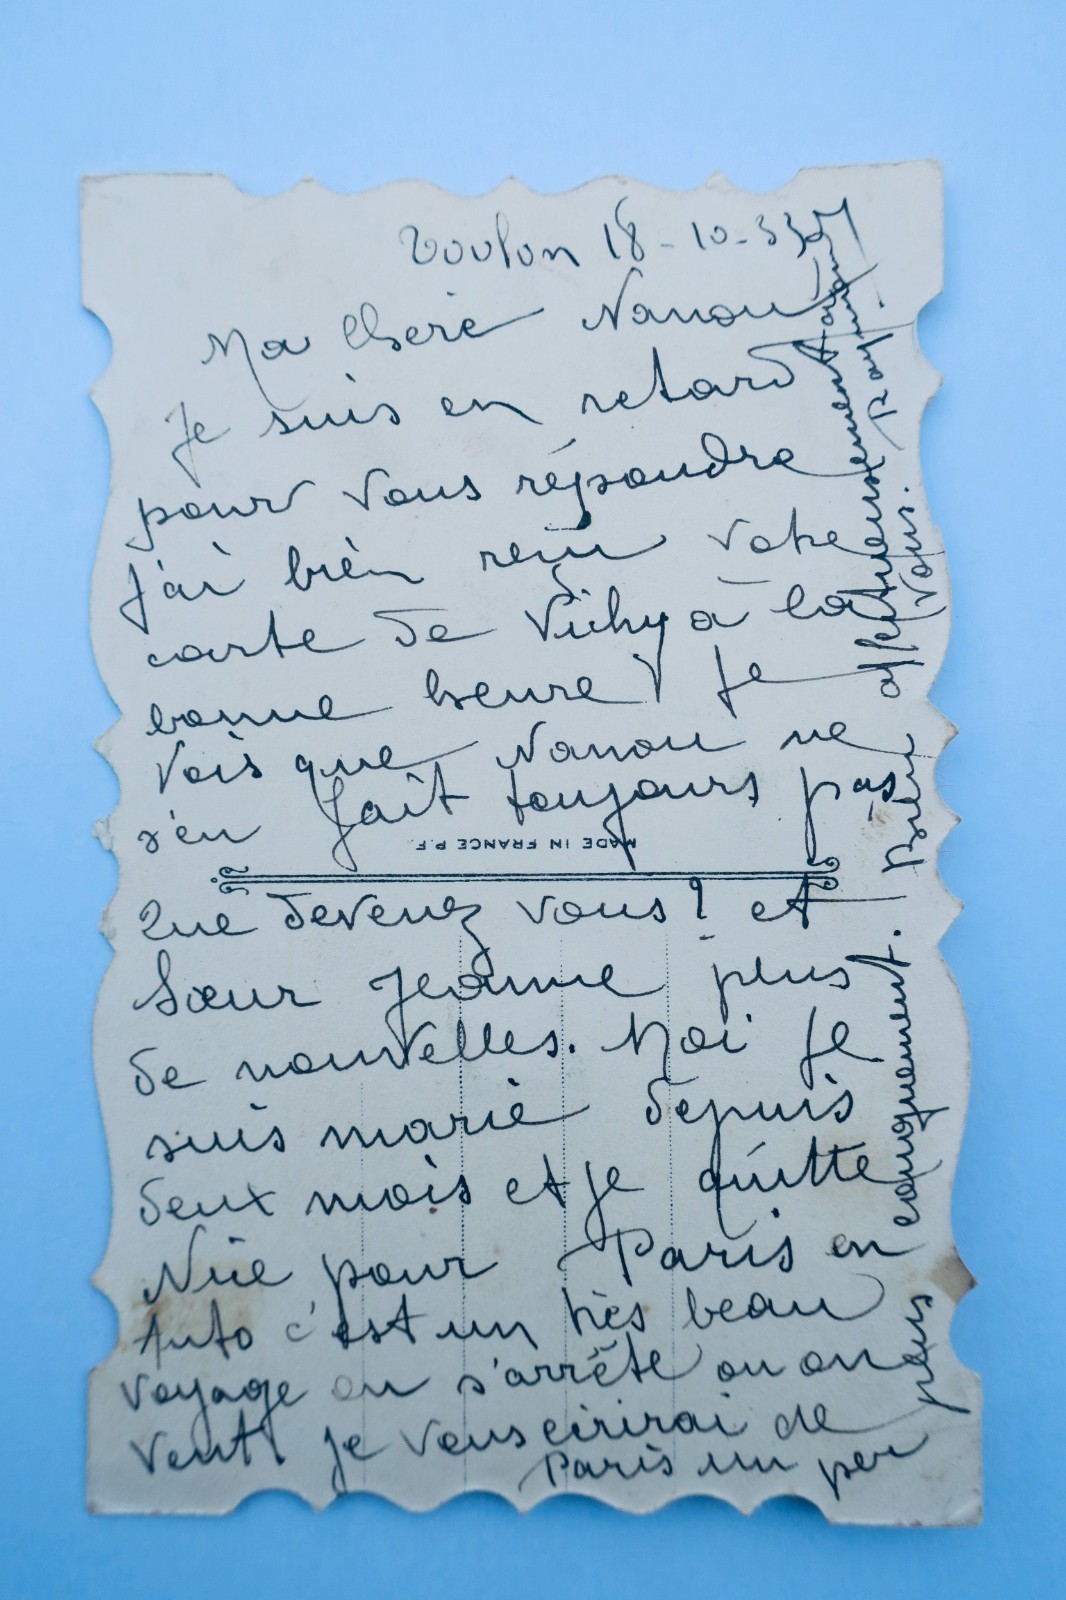 Toulon 18-10-33
Ma Chère Nanou
Je suis en retard
pour vous répondre
J'ai bien reçu votre
carte de Vichy à la
bonne heure! Je
vois que Nanou ne
s'en fait toujours pas
MADE IN FRANCE P.F.
Que devenez vous? et
Soeur Jeanne plus
de nouvelles. Moi je
suis marié depuis
deux mois et je quitte
Nice pour Paris en
Auto c'est un très beau
voyage on s'arrête ou on
veut. Je vous écrirai de
Paris un peu
plus longuement. Bien
affectueusement à
vous.